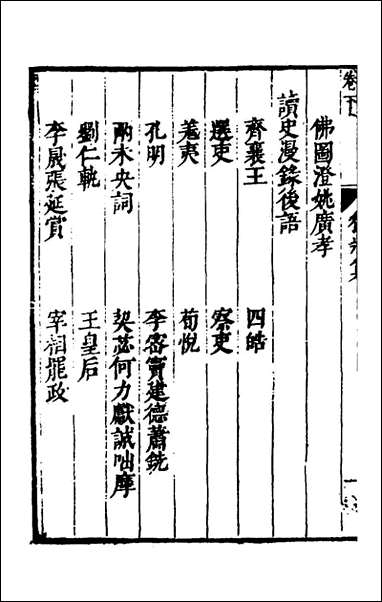 卷下
佛圖澄姚廣孝
讀史漫錄後語
齊襄王
四皓
選吏
察吏
羗夷
荀悅
孔明
李密竇建德蕭銑
酹未央詞
契苾何力獻誠咄摩
劉仁軌
王皇后
李晟張延賞
宰相罷政